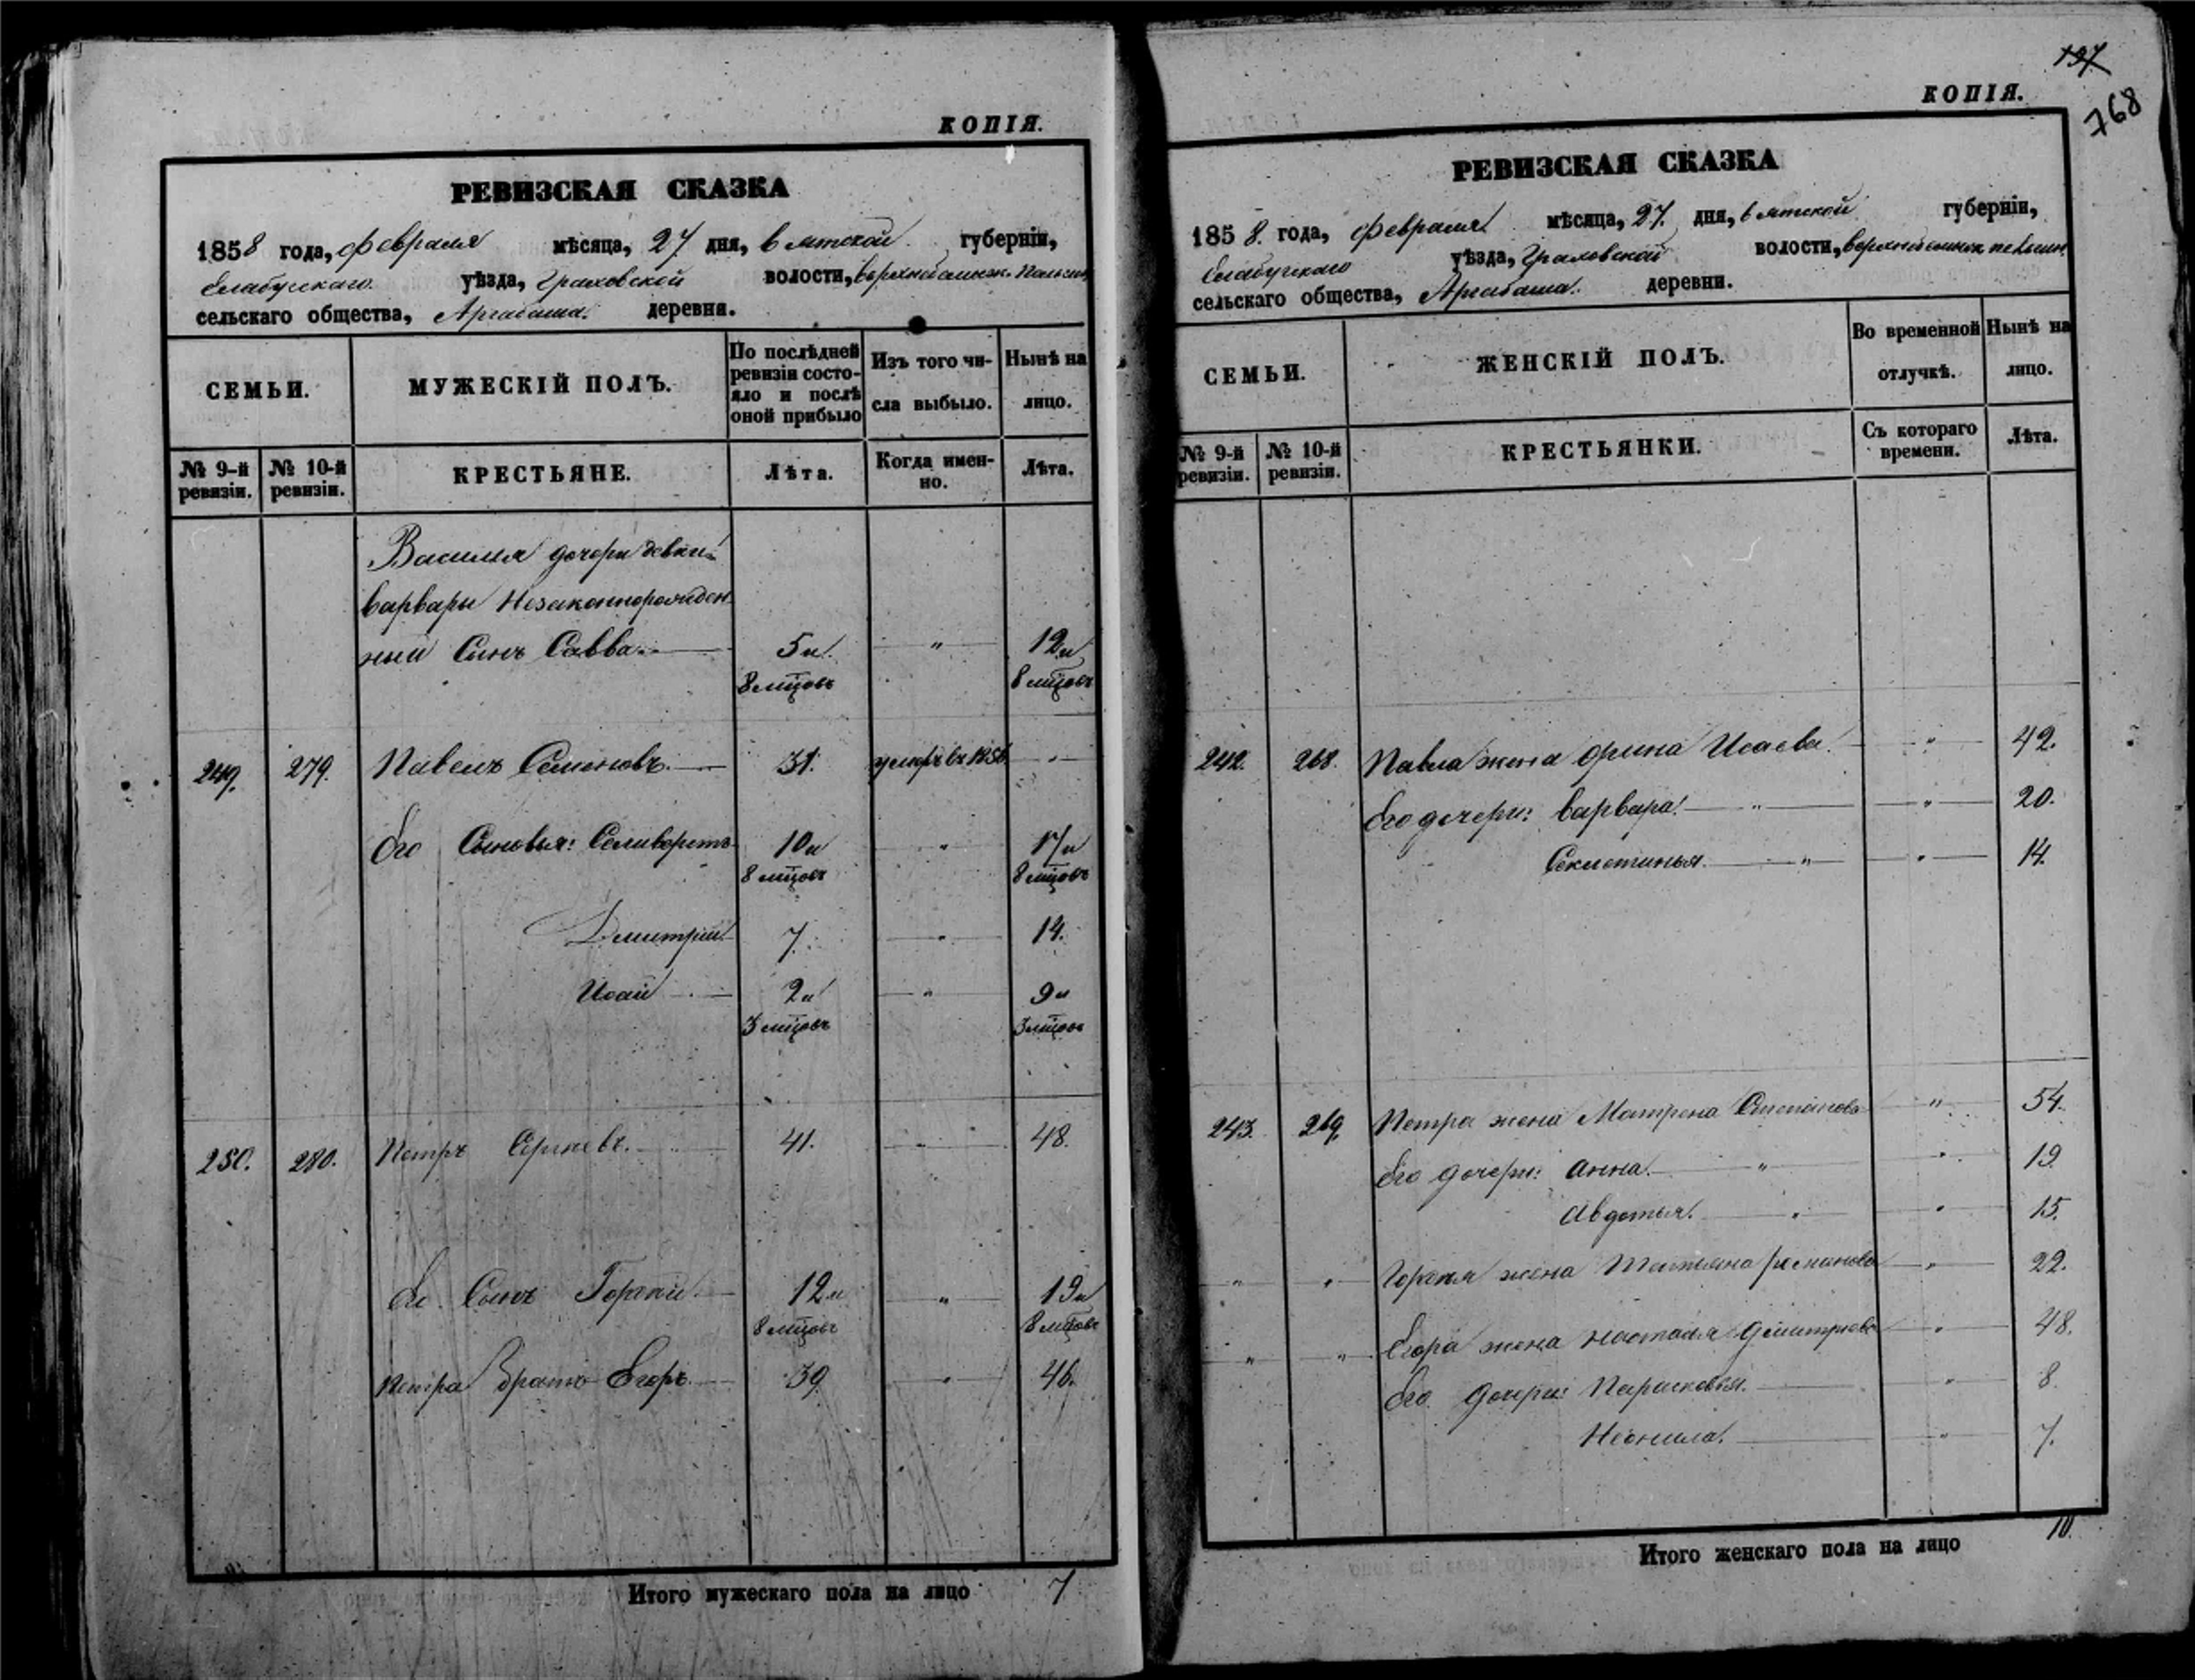 КОПІЯ.
РЕВИЗСКАЯ СКАЗКА
1858 года, Февраля мѣсяца, 27 дня, Вятской губерніи,
Елабугского уѣзда, Граховской волости,
сельскаго общества, Аргабаша. деревни.
СЕМЬИ. МУЖЕСКІЙ ПОЛЪ. По послѣдней ревизіи состояло и послѣ оной прибыло Изъ того числа выбыло. Нынѣ на лицо.
№ 9-й ревизіи. № 10-й ревизіи. КРЕСТЬЯНЕ. Лѣта. Когда именно. Лѣта.
Василья дочери девки
Варвары Незаконнорожден
ный Сынъ Савва. 5 и " 12 и
8 мцовъ 8 мцовъ
249. 279. Павелъ Семеновъ. 31. умеръ въ 1856 "
Его Сыновья: Селиверстъ 10 и " 17 и
8 мцовъ 8 мцовъ
Дмитрій 7. " 14.
Исай 2 и " 9 и
3 мцовъ 3 мцовъ
250. 280. Петръ Сергѣевъ. 41. " 48.
Ег. Сынъ Гордѣй. 12 и " 19 и
8 мцовъ 8 мцовъ
Петра Братъ Егоръ. 39 " 46.
Итого мужескаго пола на лицо 7
197
768
КОПІЯ.
РЕВИЗСКАЯ СКАЗКА
1858. года, Февраля мѣсяца, 27. дня, Вятской губерніи,
Елабугского уѣзда, Граховской волости,
сельскаго общества, Аргабаша. деревни.
СЕМЬИ. ЖЕНСКІЙ ПОЛЪ. Во временной отлучкѣ. Нынѣ на лицо.
№ 9-й ревизіи. № 10-й ревизіи. КРЕСТЬЯНКИ. Съ котораго времени. Лѣта.
242. 268. Павла жена Орина Исаева. " 42.
Его дочери: Варвара. " " 20.
Секлетинья. " " 14.
243. 269. Петра жена Матрена Степанова " 54.
Его дочери: Анна. " " 19
Авдотья. " " 15.
" " жена Татьяна Романова " 22.
" " Егора жена Настасья Дмитріева " 48.
Его дочери: Парасковья. " 8.
Неонила. " 7.
Итого женскаго пола на лицо 10.